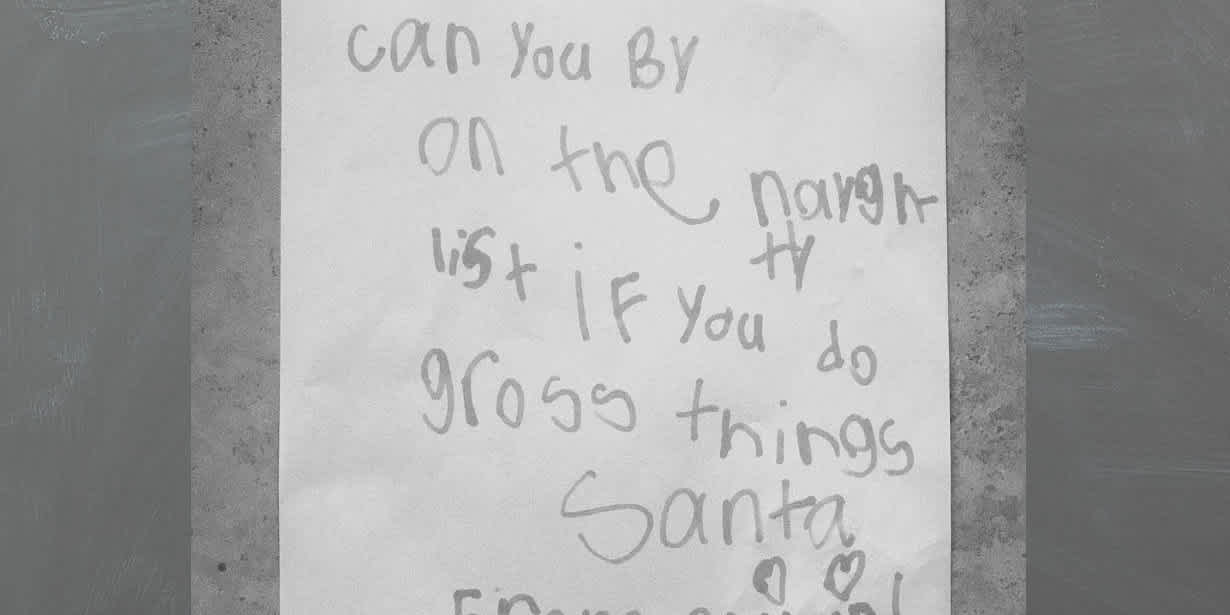 can you By
on the narght
ty
list if you do
gross things
Santa